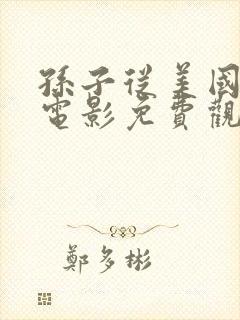 孫子從美國
電影免費觀
鄭多彬